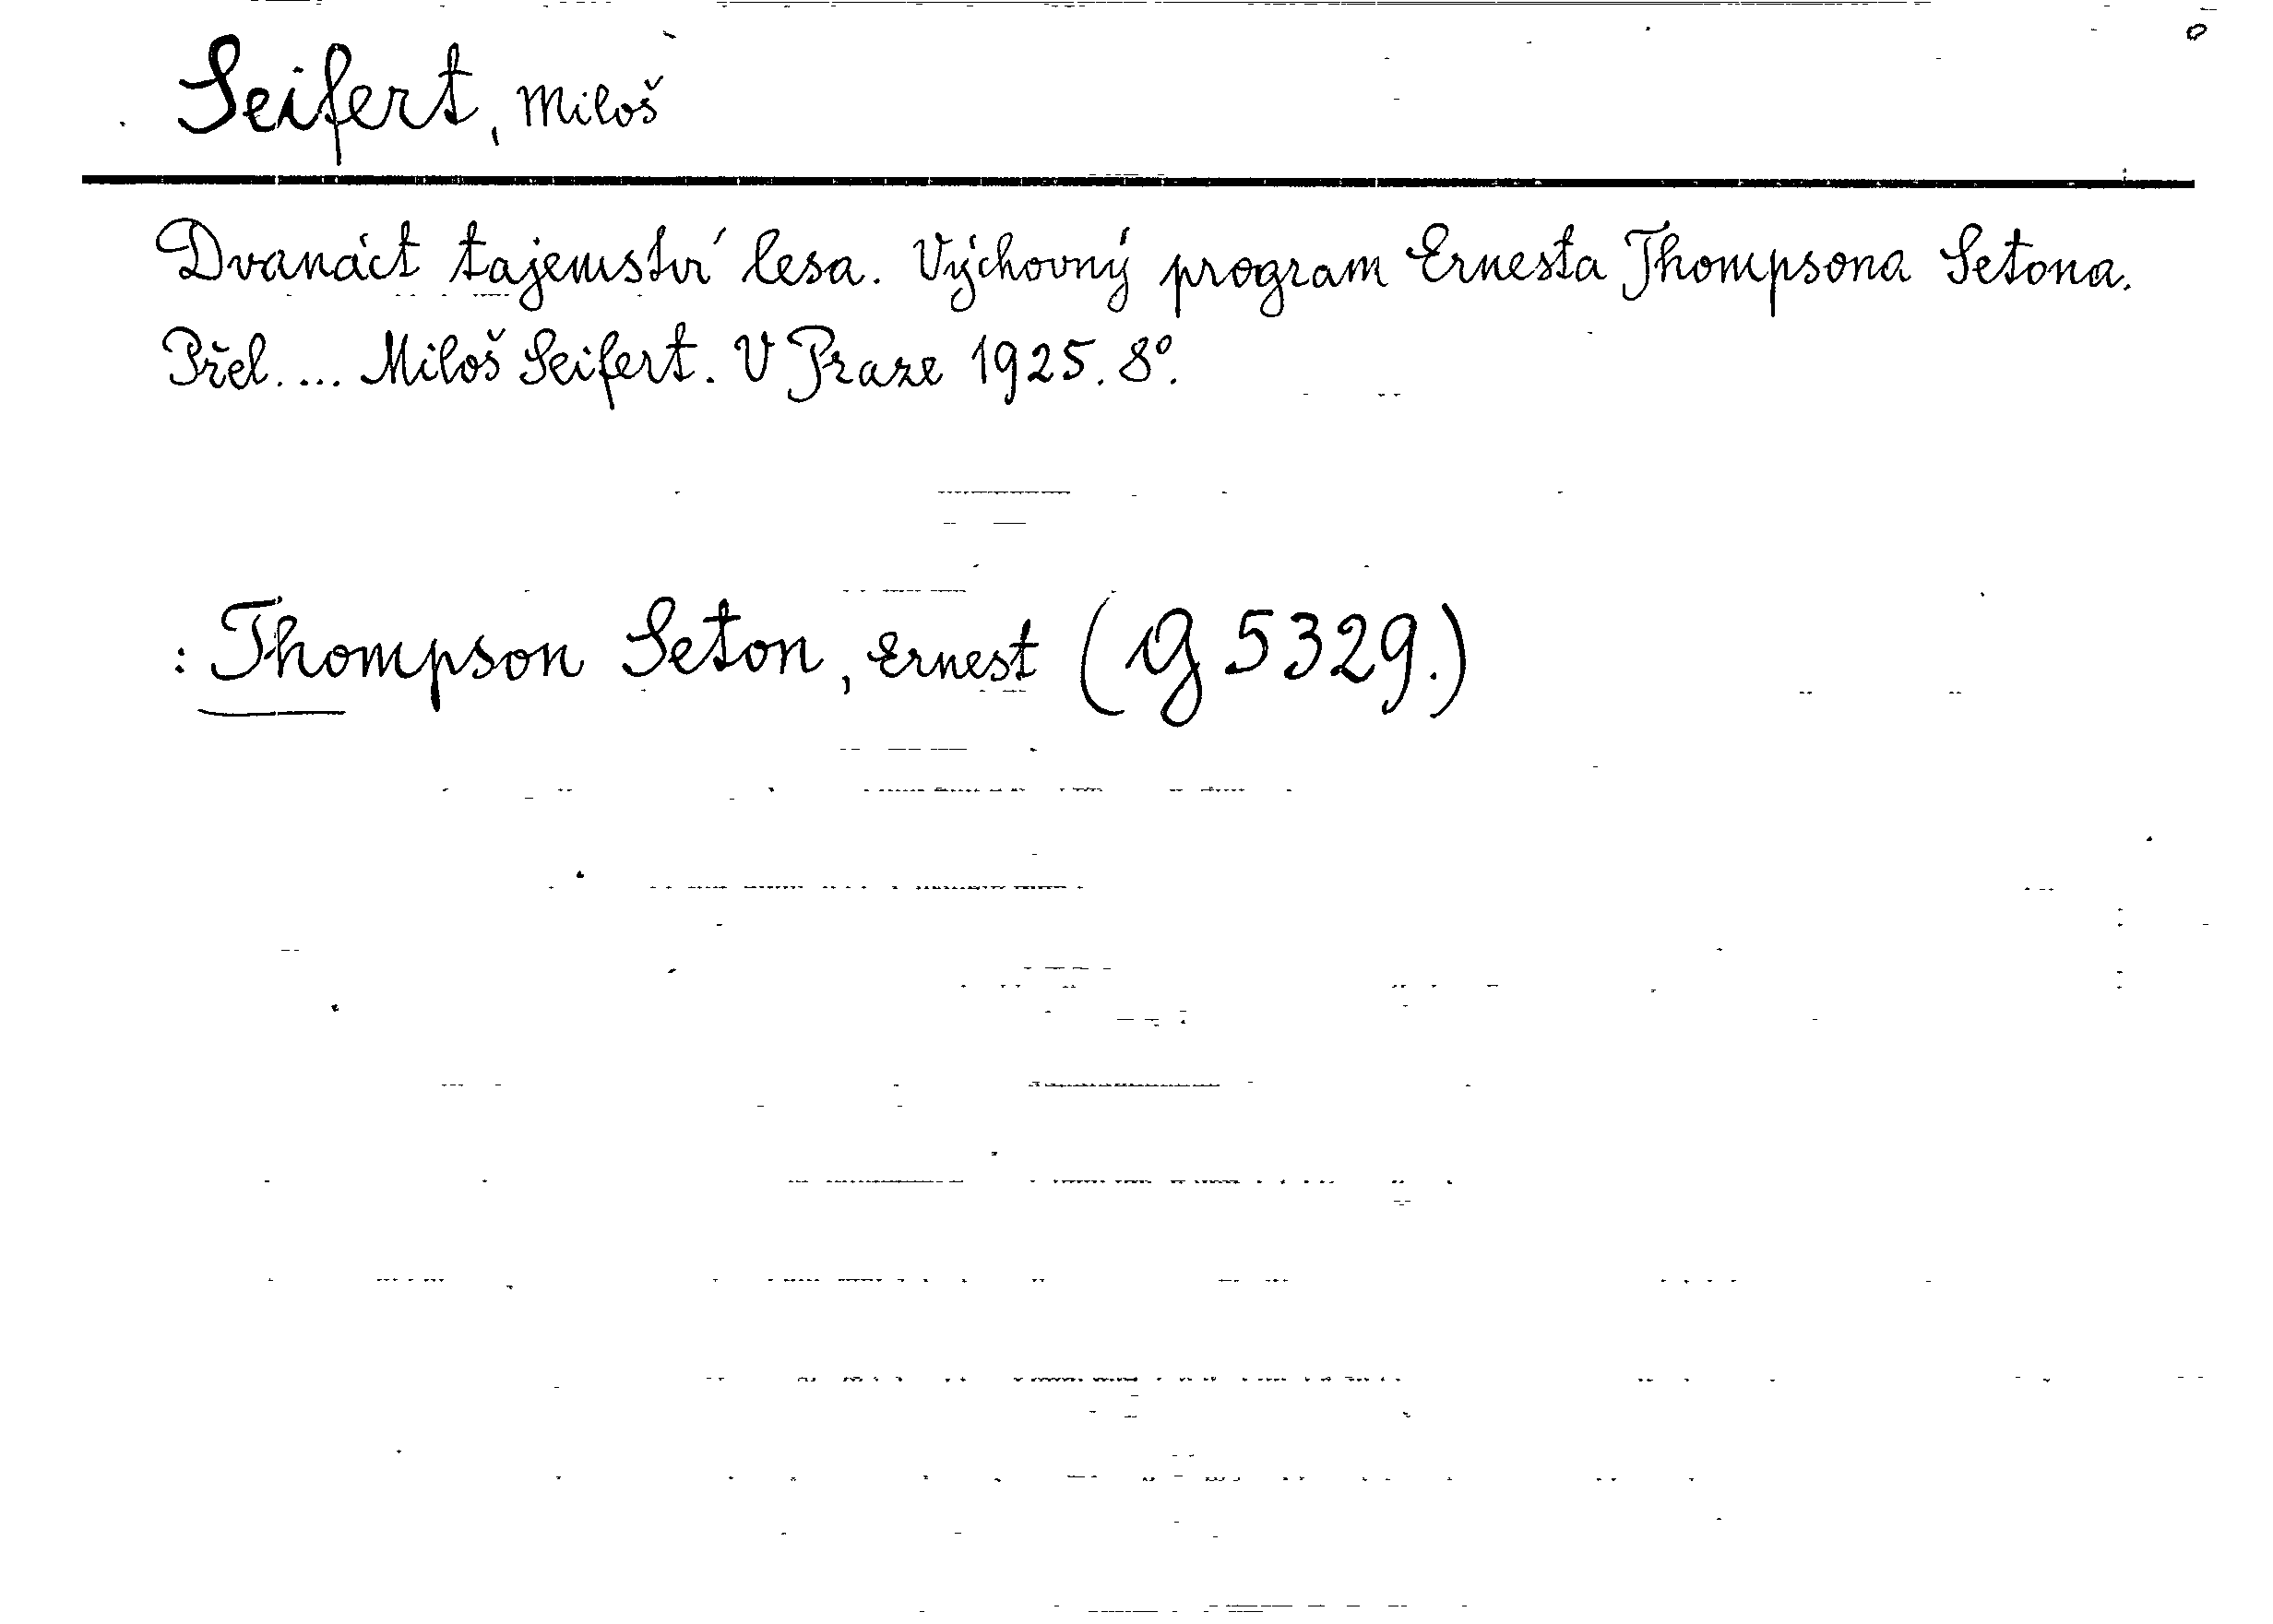 Seifert, Miloš
Dvanáct tajemství lesa. Výchovný program Ernesta Thompsona Setona.
Přel.... Miloš Seifert. V Praze 1925. 8°.
: Thompson Seton, Ernest (G 5329.)